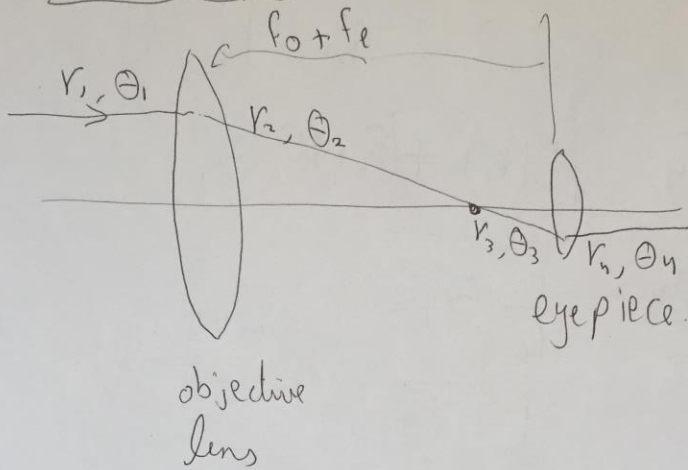 f₀ + fₑ
r₁, θ₁
r₂, θ₂
r₃, θ₃
r₄, θ₄
eyepiece.
objective
lens